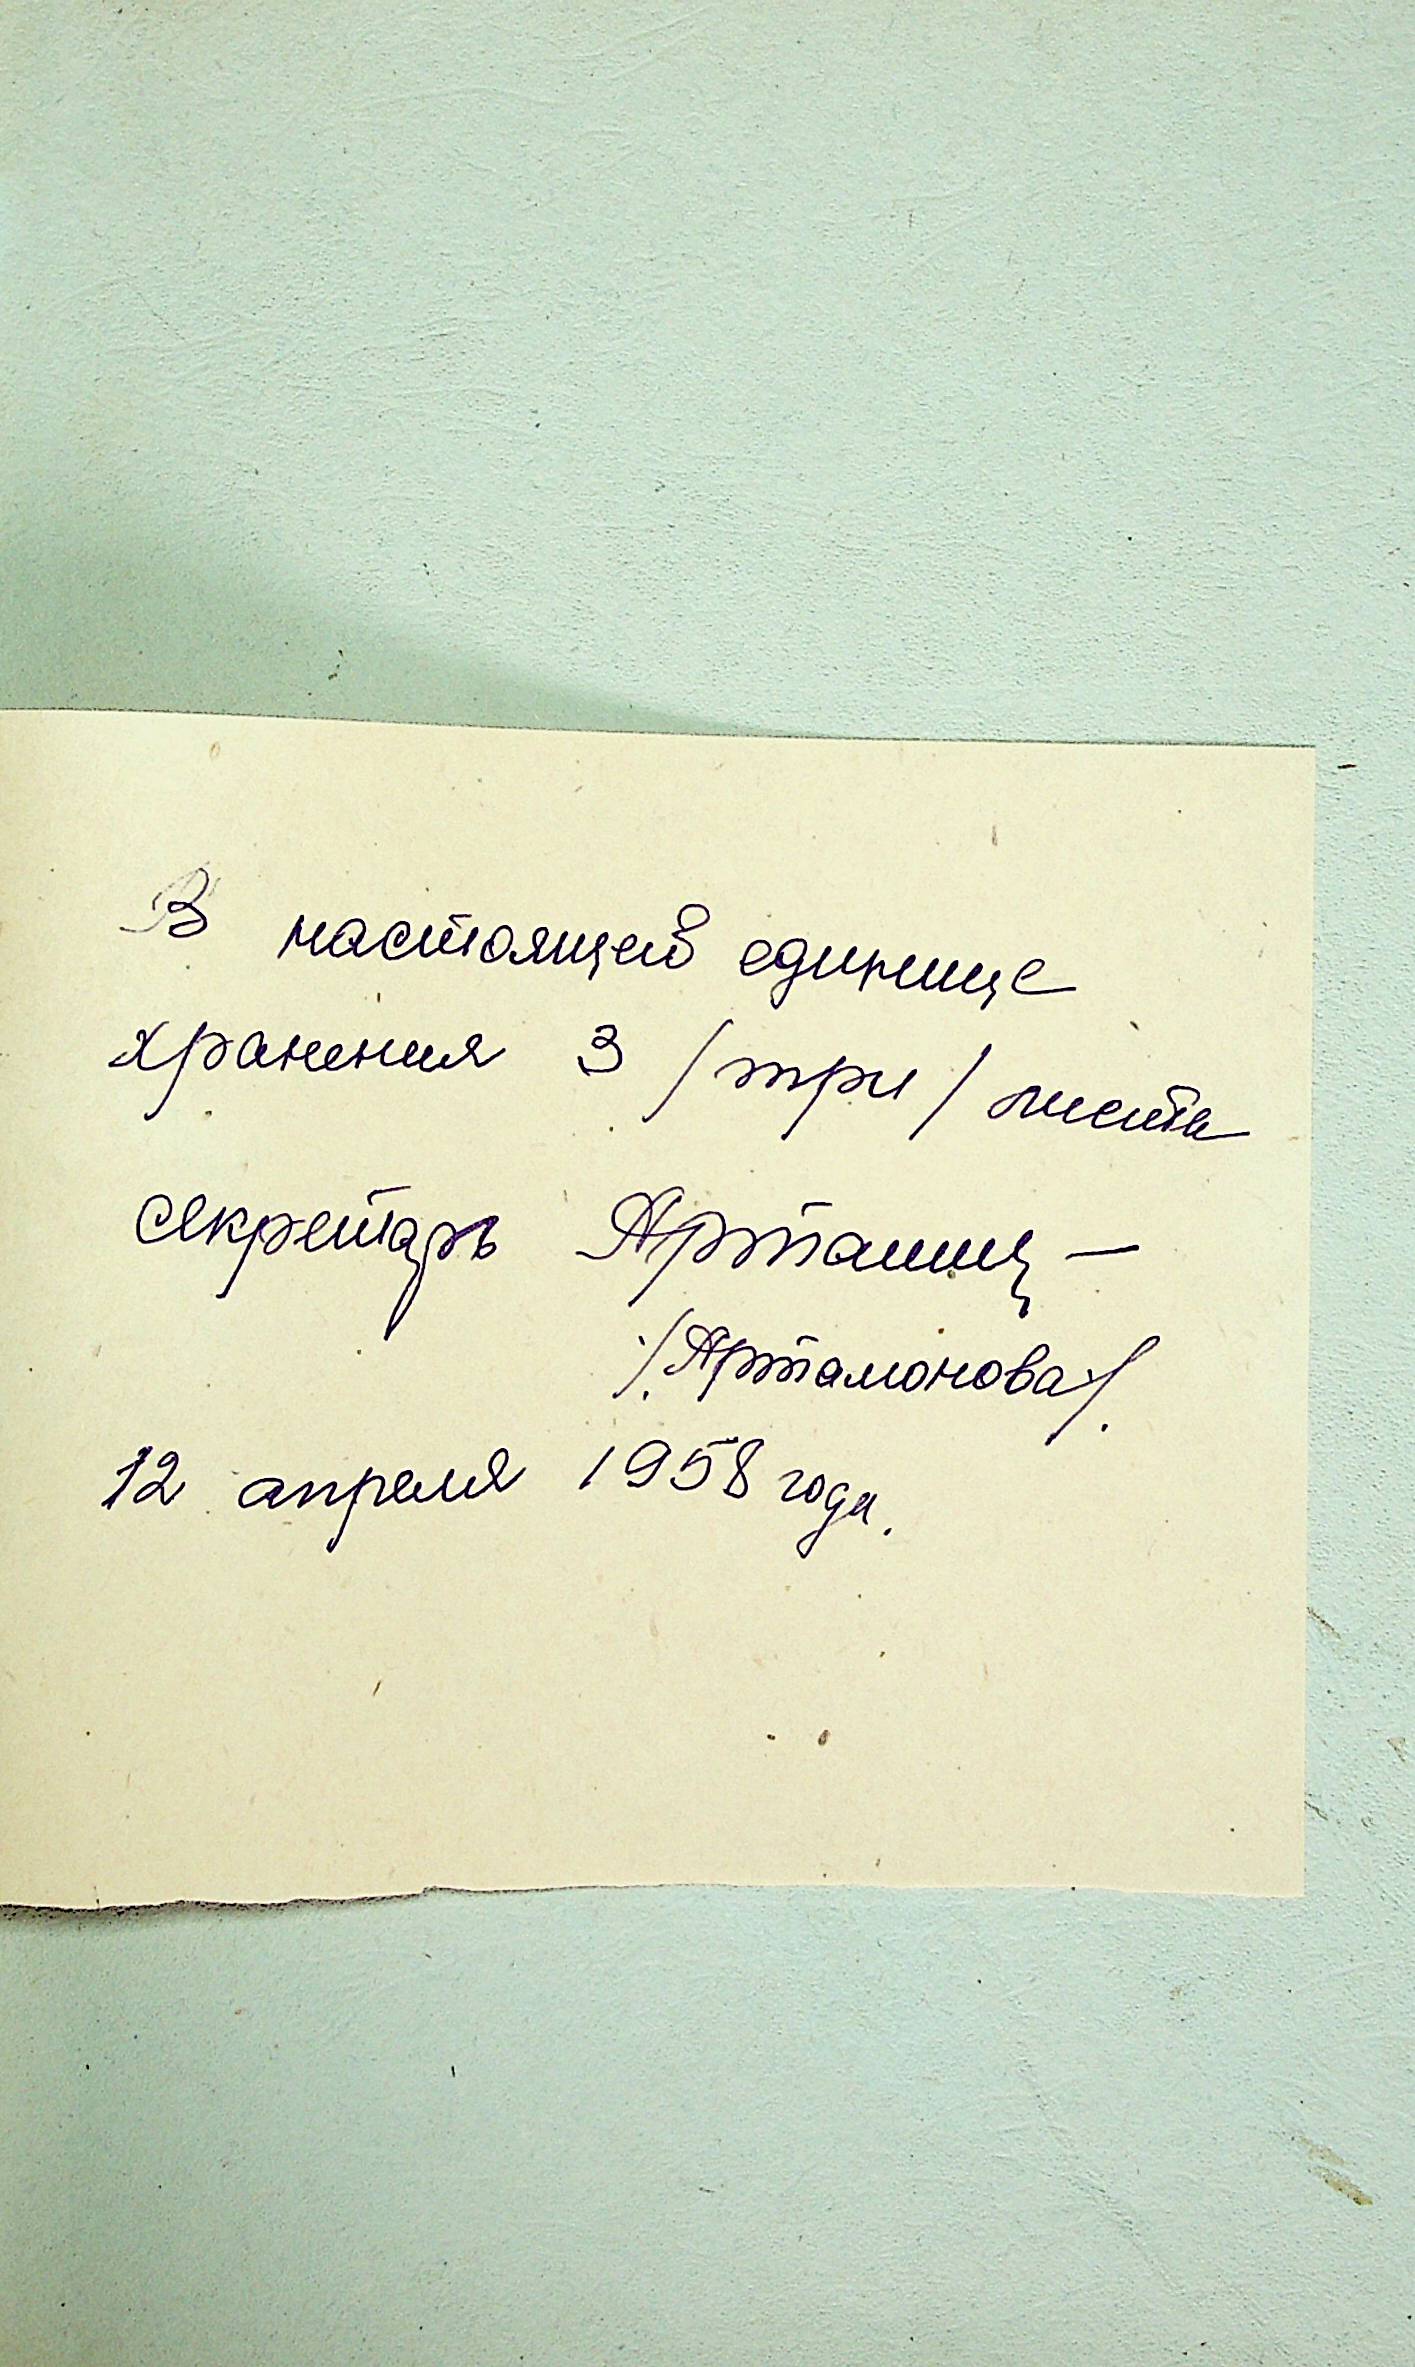 В настоящей единице
хранения 3 /три/ листа
секретарь
/Артамонова/.
12 апреля 1958 года.